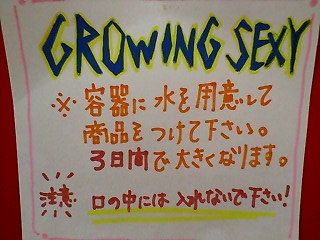 GROWING SEXY
※容器に水を用意して
商品をつけて下さい。
3日間で大きくなります。
注意 口の中には入れないで下さい!